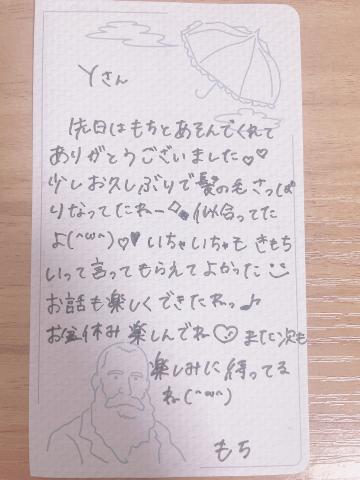 Yさん
先日はもちとあそんでくれて
ありがとうございました♡♡
少しお久しぶりで髪の毛さっぱ
りなってたねー 似合ってた
よ(^ω^)♡♥いちゃいちゃも きもち
いって言ってもらえてよかった
お話も楽しくできたねっ♪
お盆休み 楽しんでね♡また次も
楽しみに待ってる
ね(^ω^)
もち